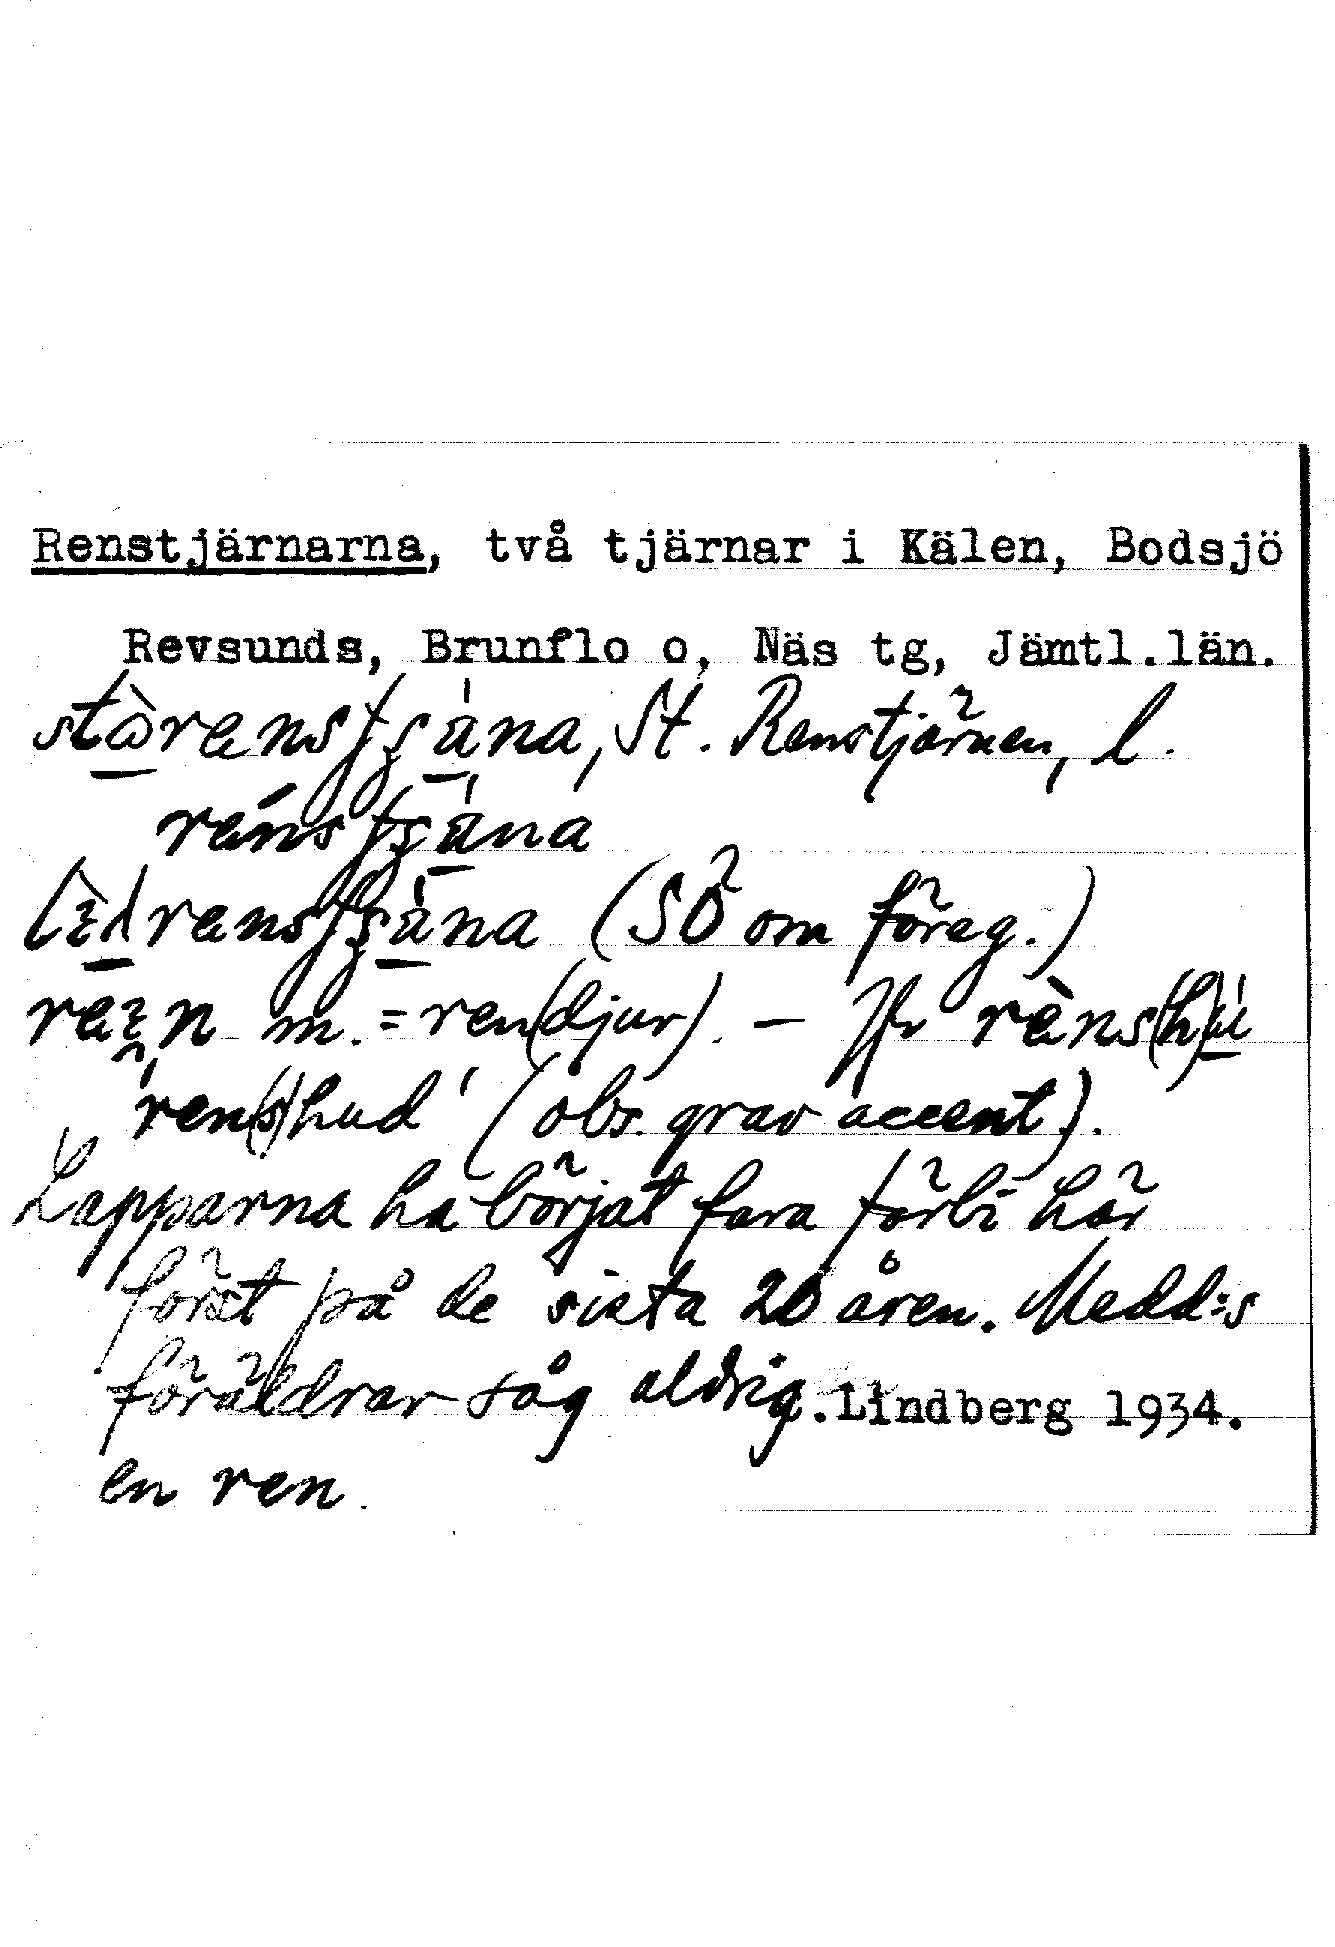 Renstjärnarna, två tjärnar i Kälen, Bodsjö
Revsunds, Brunflo o. Näs tg, Jämtl.län.
stòrensʃʒána, St. Renstjärnen, l.
rénsʃʒána
lìzlrensʃʒána (SÖ om föreg.)
m. = ren(djur). – Jfr rèns(h)ú
'ren(s)hud' (obs. grav accent).
Lapparna ha börjat fara förbi här
först på de sista 20 åren. Medd:s
föräldrar såg aldrig. Lindberg 1934.
en ren.